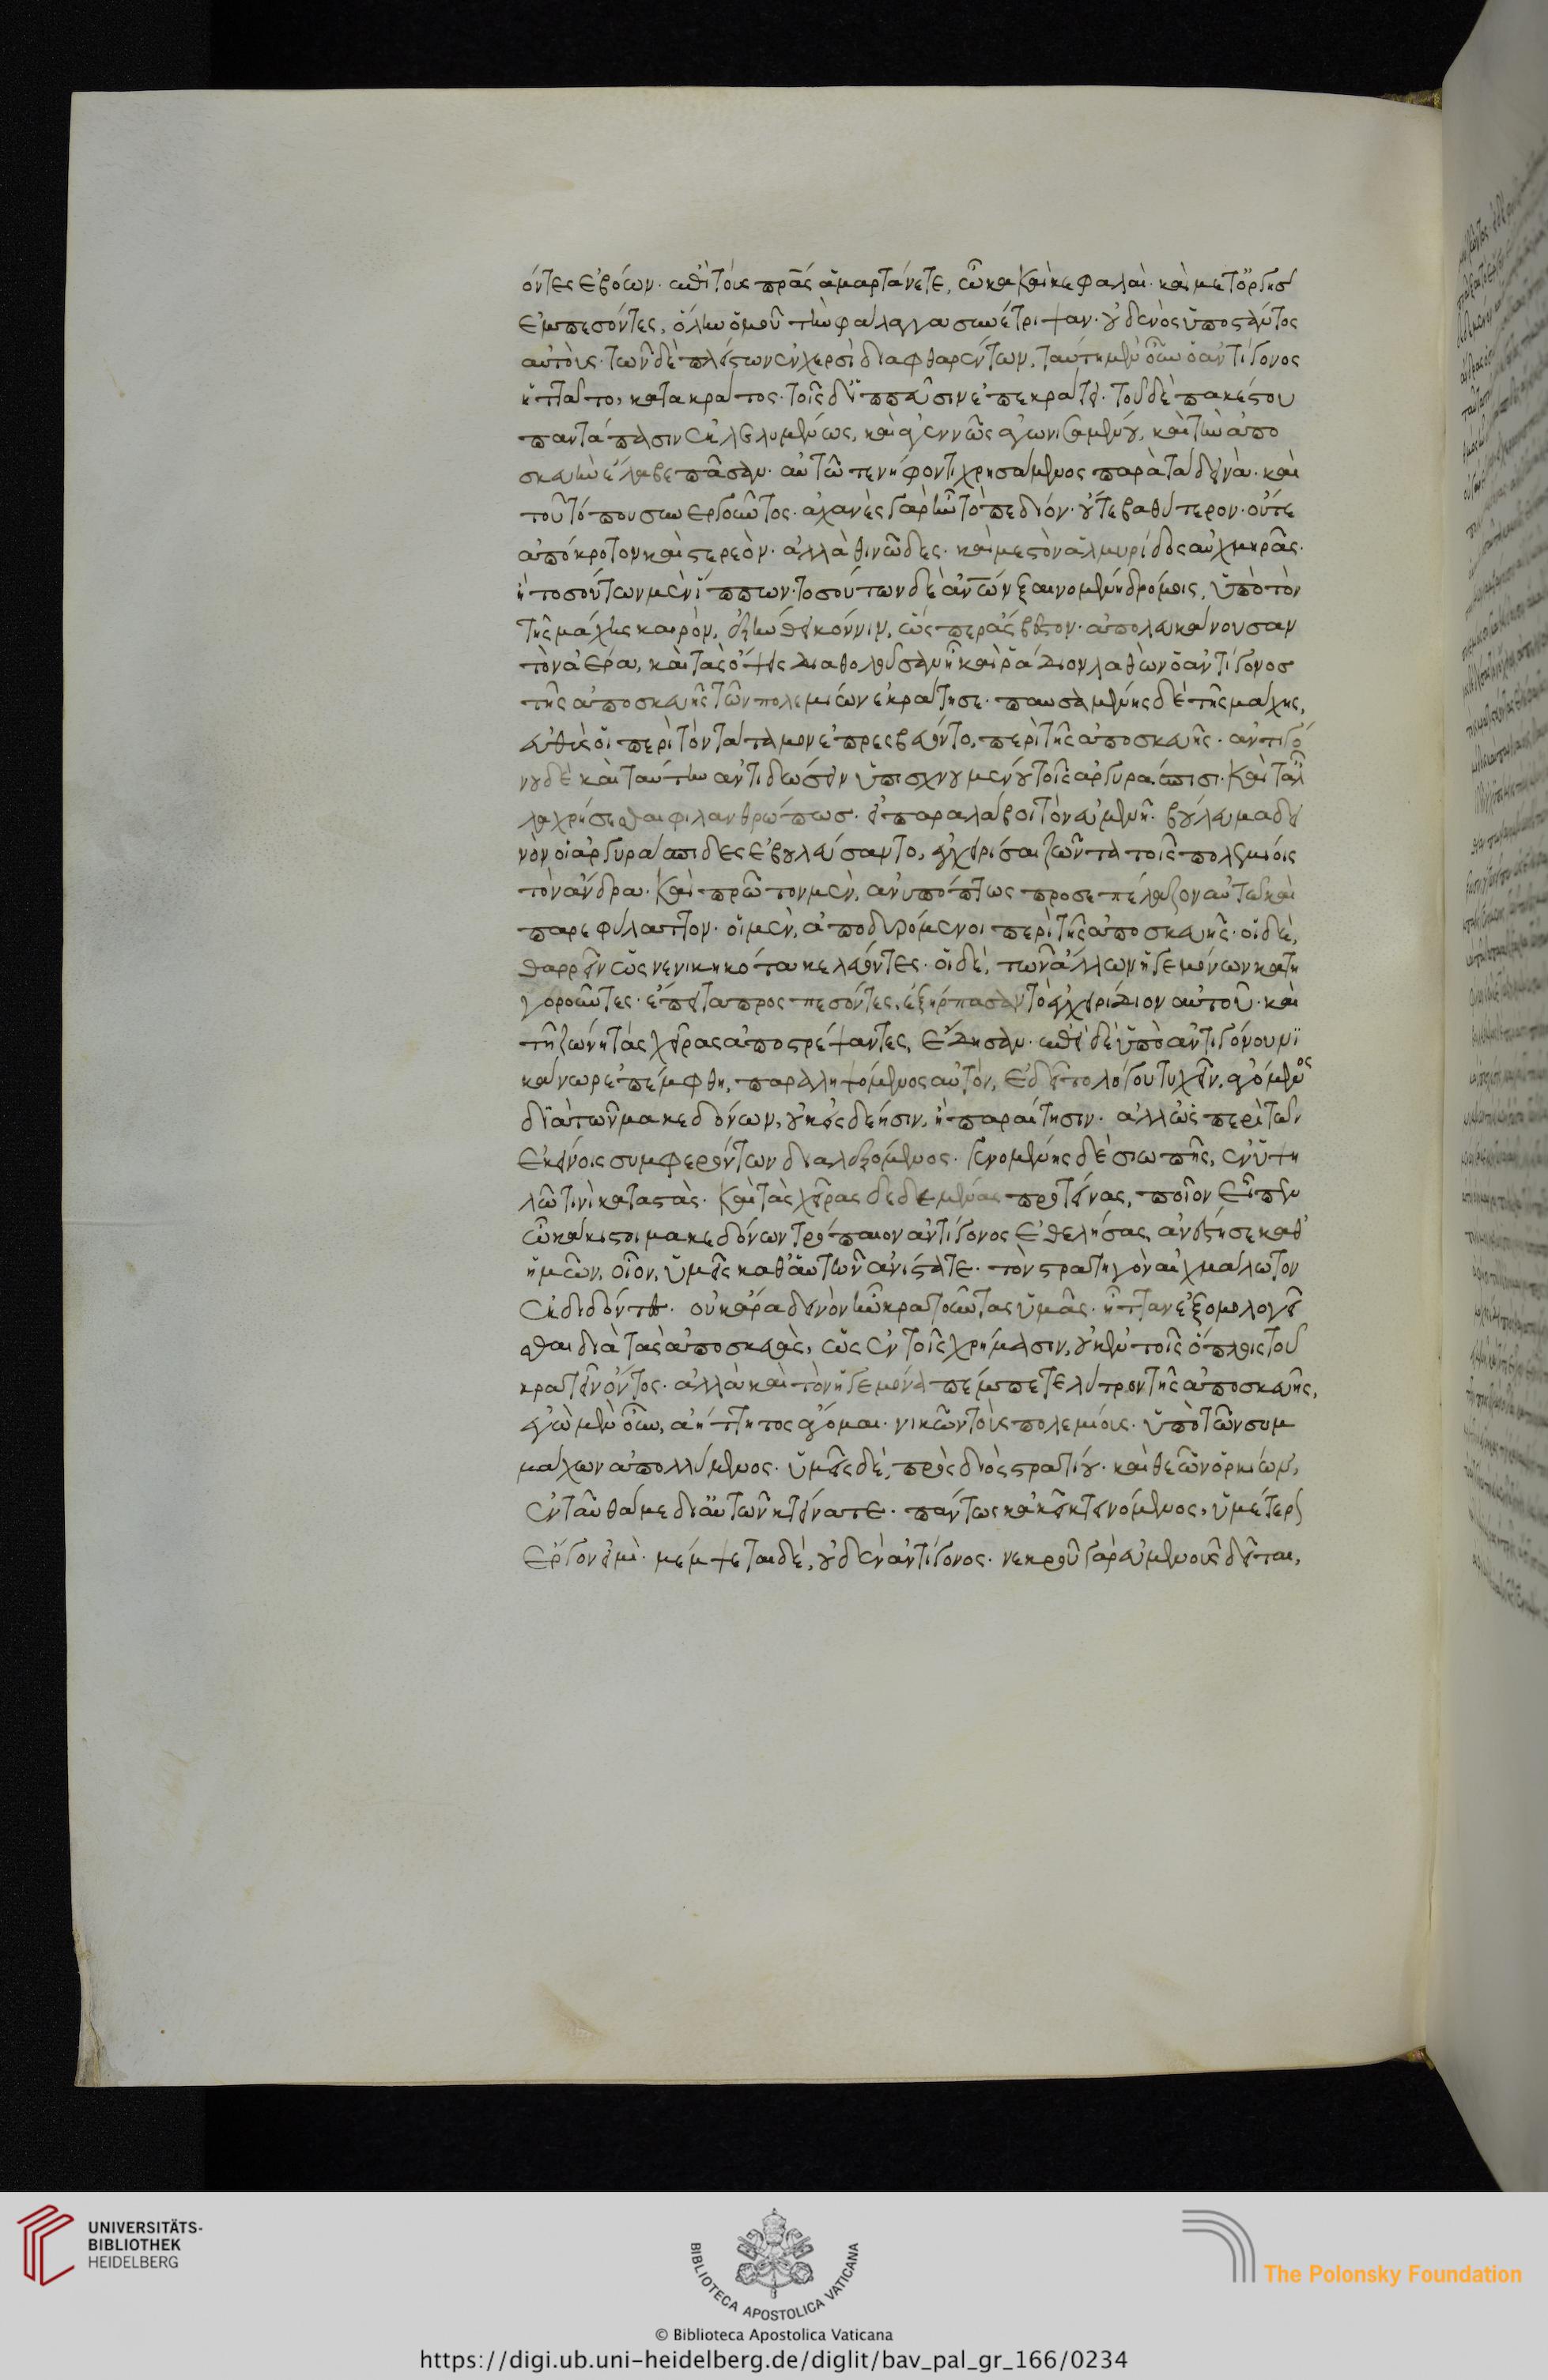 όντες ἐβόων· ἐπὶ τοὺς πρας ἁμαρτάνετε, ὦ κακαὶ κεφαλαί· καὶ μετ' ὀργῆσ
ἐμπεσόντες, ὅλην ὁμοῦ τὴν φάλαγγα συνέτριψαν· οὐδενὸς ὑποστάντος
αὐτοὺς· τῶν δὲ πλείστων ἐν χερσὶ διαφθαρέντων, ταύτη μὲν οὖν ὁ ἀντίγονος
ἡττᾶτο, κατακράτος· τοῖς δ' ἱππεῦσιν ἐπεκράτει· τοῦ δὲ πευκέστου
παντάπασιν ἐκλελυμένως, καὶ ἀγεννῶς ἀγωνισαμένου, καὶ τὴν ἀπο
σκευὴν ἔλαβε πᾶσαν· αὑτῶ τε νήφοντι χρησάμενος παρὰ τὰ δεινὰ· καὶ
τοῦ τόπου συνεργοῦντος· ἀχανὲς γὰρ ἦν τὸ πεδίον· οὔτε βαθύτερον· οὔτε
ἀπόκροτον καὶ στερεόν· ἀλλὰ θινῶδες· καὶ μεστὸν ἁλμυρίδος αὐχμηρᾶς·
ἣ τοσούτων μὲν ἵππων· τοσούτων δὲ ἀνῶν ξαινομένη δρόμοις, ὑπὸ τὸν
τῆς μάχης καιρὸν, ἐξήνθει κόνιν, ὥσπερ ἄσβεστον· ἀπολευκαίνουσαν
τὸν ἀέρα, καὶ τὰς ὄψεις διαθολοῦσαν ἧ καὶ ῥάδιον λαθὼν ὁ ἀντίγονοσ
τῆς ἀποσκευῆς τῶν πολεμίων ἐκράτησε· παυσαμένης δὲ τῆς μάχης,
εὐθὺς οἱ περὶ τὸν τεύταμον ἐπρεσβεύοντο, περὶ τῆς ἀποσκευῆς· ἀντιγό
νου δὲ καὶ ταύτην ἀντιδώσειν ὑπισχνουμένου τοῖς ἀργυράσπισι· καὶ τἄλ
λα χρήσεσθαι φιλανθρώπωσ· εἰ παραλάβοι τὸν εὐμένη· βούλευμα δει
νὸν οἱ ἀργυράσπιδες ἐβουλεύσαντο, ἐγχειρίσαι ζῶντα τοῖς πολεμίοις
τὸν ἄνδρα· καὶ πρῶτον μὲν, ἀνυπόπτως προσεπέλαζον αὐτῶ καὶ
παρεφύλαττον· οἱ μὲν, ἀποδυρόμενοι περὶ τῆς ἀποσκευῆς· οἱ δὲ,
θαρρεῖν ὡς νενικηκότα κελεύοντες· οἱ δὲ, τῶν ἄλλων ἡγεμόνων κατη
γοροῦντες· ἔπειτα προσπεσόντες, ἐξήρπασαν τὸ ἐγχειρίδιον αὐτοῦ· καὶ
τῆ ζώνη τὰς χεῖρας ἀποστρέψαντες, ἔδησαν· ἐπεὶ δὲ ὑπὸ ἀντιγόνου νι
κάνωρ ἐπέμφθη, παραληψόμενος αὐτόν, ἐδεῖτο λόγου τυχεῖν, ἀγόμενος
διὰ τῶν μακεδόνων, οὐκ εἰς δέησιν, ἢ παραίτησιν· ἀλλ' ὡς περὶ τῶν
ἐκείνοις συμφερόντων διαλεξόμενος· γενομένης δὲ σιωπῆς, ἐν ὑψη
λῶ τινὶ καταστὰς· καὶ τὰς χεῖρας δεδεμένας προτείνας, ποῖον εἶπεν
ὦ κάκιστοι μακεδόνων τρόπαιον ἀντίγονος ἐθελήσας, ἀνέστησε καθ'
ἡμῶν, οἷον, ὑμεῖς καθ' αὑτῶν ἀνίστατε· τὸν στρατηγὸν αἰχμάλωτον
ἐκδιδόντες· οὐκ ἄρα δεινὸν ἦν κρατοῦντας ὑμᾶς· ἧτταν ἐξομολογεῖ
σθαι διὰ τὰς ἀποσκευὰς, ὡς ἐν τοῖς χρήμασιν, οὐκ ἐν τοῖς ὅπλοις τοῦ
κρατεῖν ὄντος· ἀλλὰ καὶ τὸν ἡγεμόνα πέμπετε λύτρον τῆς ἀποσκευῆς,
ἐγὼ μὲν οὖν, ἀήττητος ἄγομαι· νικῶν τοὺς πολεμίους· ὑπὸ τῶν συμ
μάχων ἀπολλύμενος· ὑμεῖς δὲ, πρὸς διὸς στρατίου· καὶ θεῶν ὁρκίων,
ἐνταῦθά με δι' αὑτῶν κτείνατε· πάντως κἀκεῖ κτεινόμενος, ὑμέτερον
ἔργον εἰμὶ· μέμψεται δὲ, οὐδὲν ἀντίγονος· νεκροῦ γὰρ εὐμένους δεῖται,
UNIVERSITÄTS-
BIBLIOTHEK
HEIDELBERG
BIBLIOTECA APOSTOLICA VATICANA
© Biblioteca Apostolica Vaticana
The Polonsky Foundation
https://digi.ub.uni-heidelberg.de/diglit/bav_pal_gr_166/0234